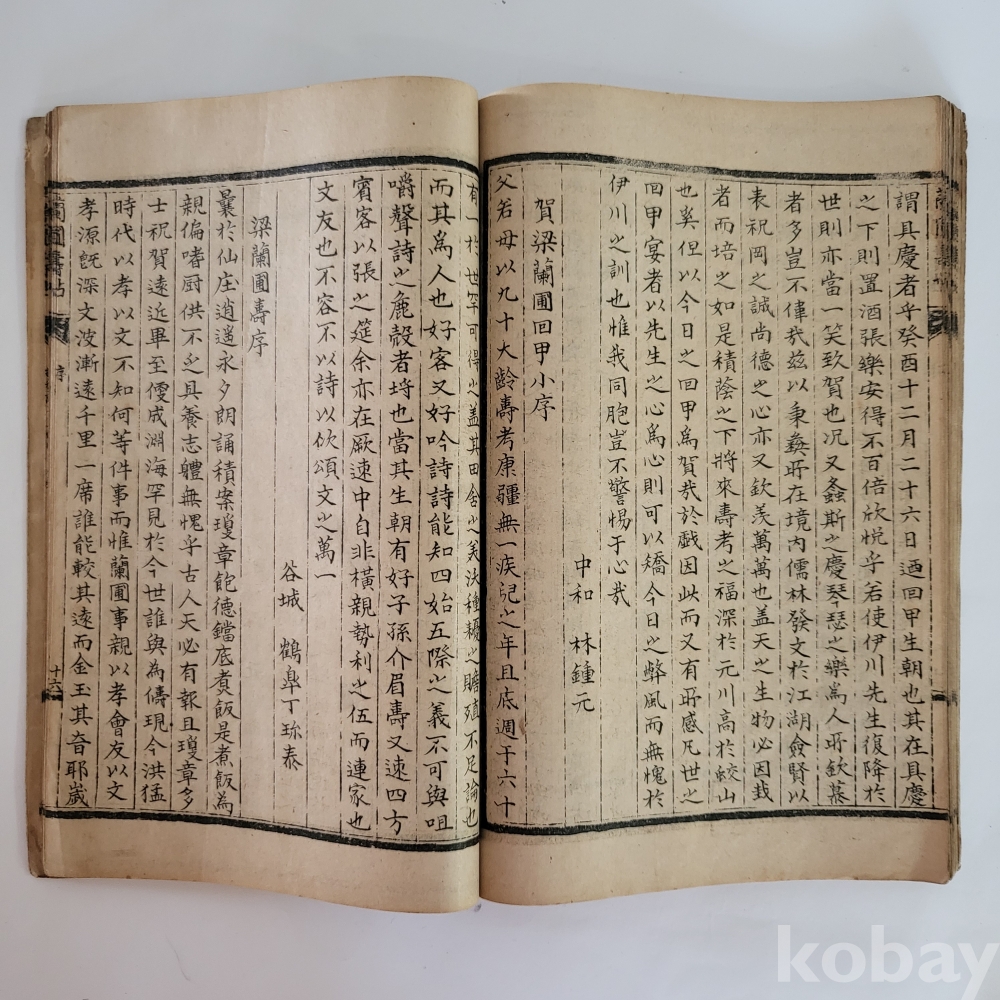 謂具慶者乎癸酉十二月二十六日迺回甲生朝也其在具慶
之下則置酒張樂安得不百倍欣悅乎若使伊川先生復降於
世則亦當一笑致賀也况又螽斯之慶琴瑟之樂為人所欽慕
者多豈不偉哉玆以秉彝所在境內儒林發文於江湖僉賢以
表祝岡之誠尚德之心亦又欽羨萬萬也盖天之生物必因栽
者而培之如是積蔭之下將來壽考之福深於元川高於蛟山
也奚但以今日之回甲爲賀哉於戲因此而又有所感凡世之
回甲宴者以先生之心爲心則可以矯今日之弊風而無愧於
伊川之訓也惟我同胞豈不警惕于心哉
中和 林鍾元
賀梁蘭圃回甲小序
父若母以九十大齡壽考康彊無一疾兒之年且底週于六十
有一於世罕可得之盖其田舍之美汰種耰之贍殖不足論也
而其爲人也好客又好吟詩詩能知四始五際之義不可與咀
嚼聲詩之麁殼者埒也當其生朝有好子孫介眉壽又速四方
賓客以張之筵余亦在厥速中自非橫親勢利之伍而連家也
文友也不容不以詩以欣頌文之萬一
谷城 鶴皐丁珎泰
梁蘭圃壽序
曩於仙庄逍遙永夕朗誦積案瓊章飽德鐺底煑飯是煮飯為
親偏嗜厨供不乏具養志軆無愧乎古人天必有報且瓊章多
士祝賀遠近畢至優成淵海罕見於今世誰與為儔現今洪猛
時代以孝以文不知何等件事而惟蘭圃事親以孝會友以文
孝源旣深文波漸遠千里一席誰能較其遠而金玉其音耶嵗
蘭圃壽帖
序
十三
kobay